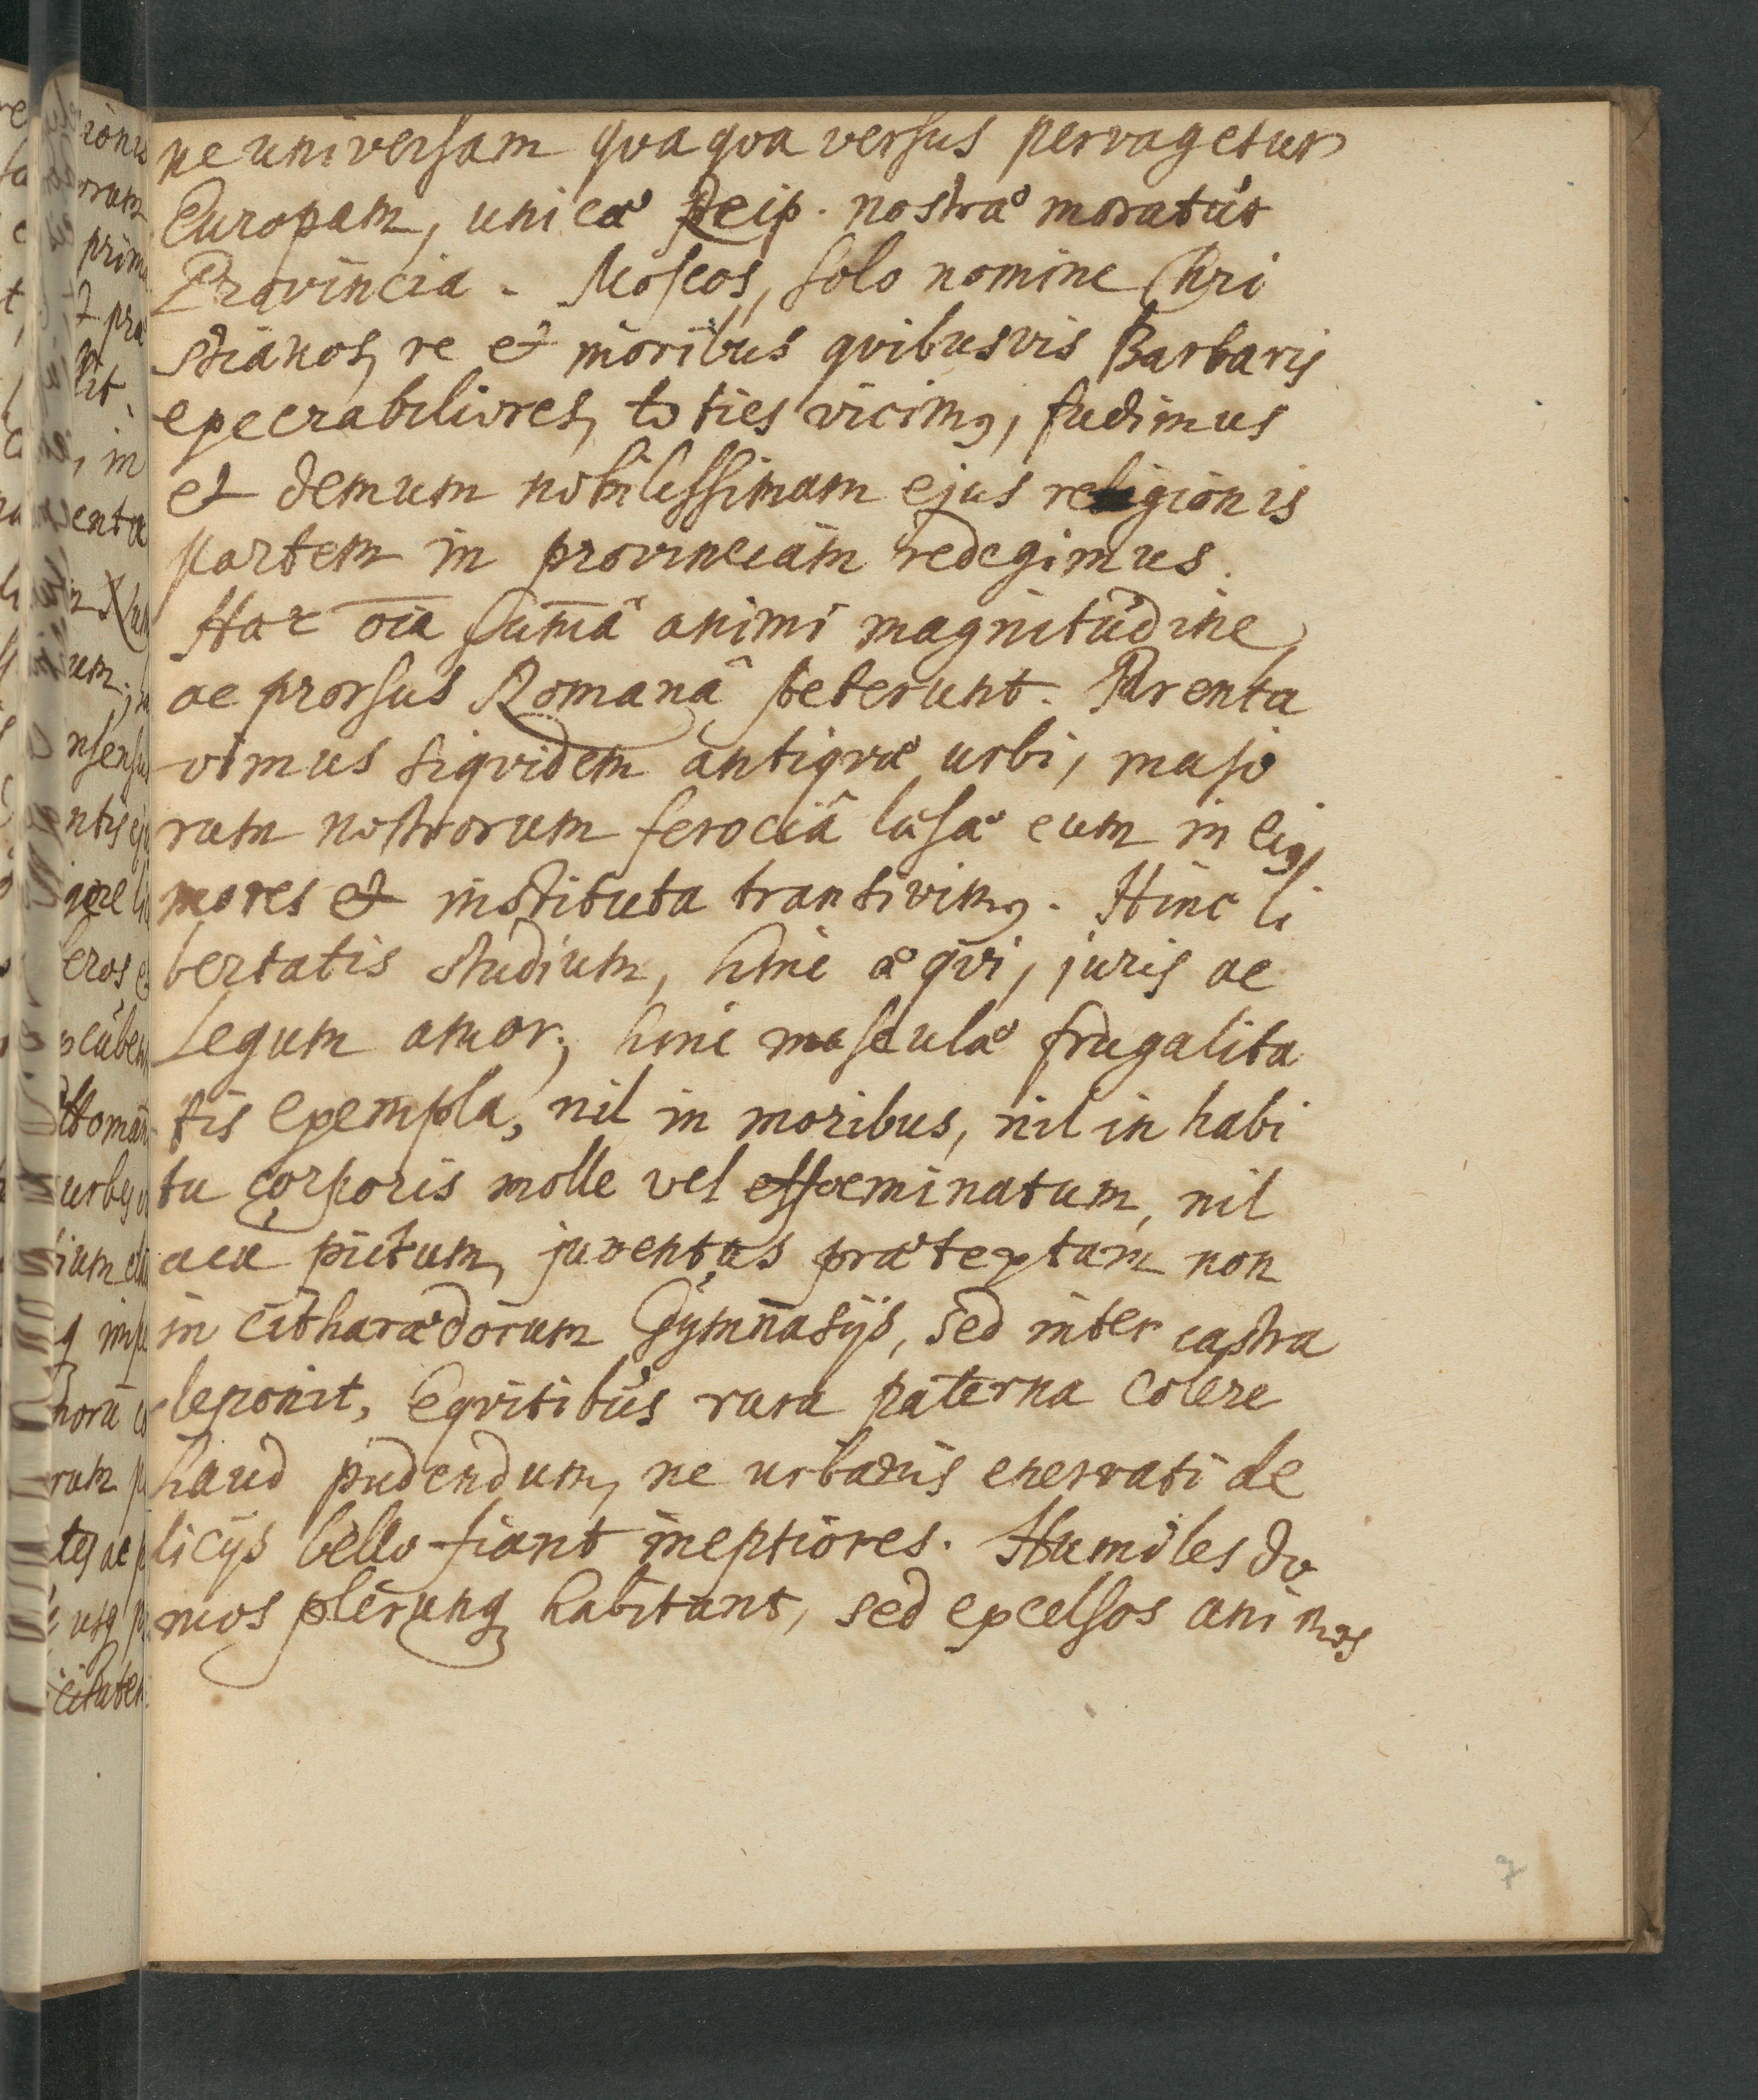 ne universam qvaqva versus pervagetur
Europam, unicâ Reip. nostræ moratur
Provincia. Moscos, solo nomine Chri
stianos, re et moribus qvibusvis Barbaris
execrabiliores, toties vicimq, fudimus
et demum nobilissimam ejus religionis
partem in provinciam redegimus.
Hæc oīa sum̄â animi magnitudine,
ac prorsus Romanâ steterunt. Parenta
vimus siqvidem antiqvæ urbi, majo
rum nostrorum ferociâ læsæ cum in eiq
mores et instituta transivimq. Hinc li
bertatis studium, hinc æqvi, juris ac
Legum amor, hinc masculæ frugalita
tis exempla, nil in moribus, nil in habi
tu corporis molle vel effoeminatum, nil
acu pictum, juventus prætextam non
in citharædorum Gymnasijs, sed inter castra
deponit, Eqvitibus rura paterna colere
haud pudendum, ne urbanis enervati de
licijs bello fiant ineptiores. Humiles do
mos plerunq habitant, sed excelsos animos
7